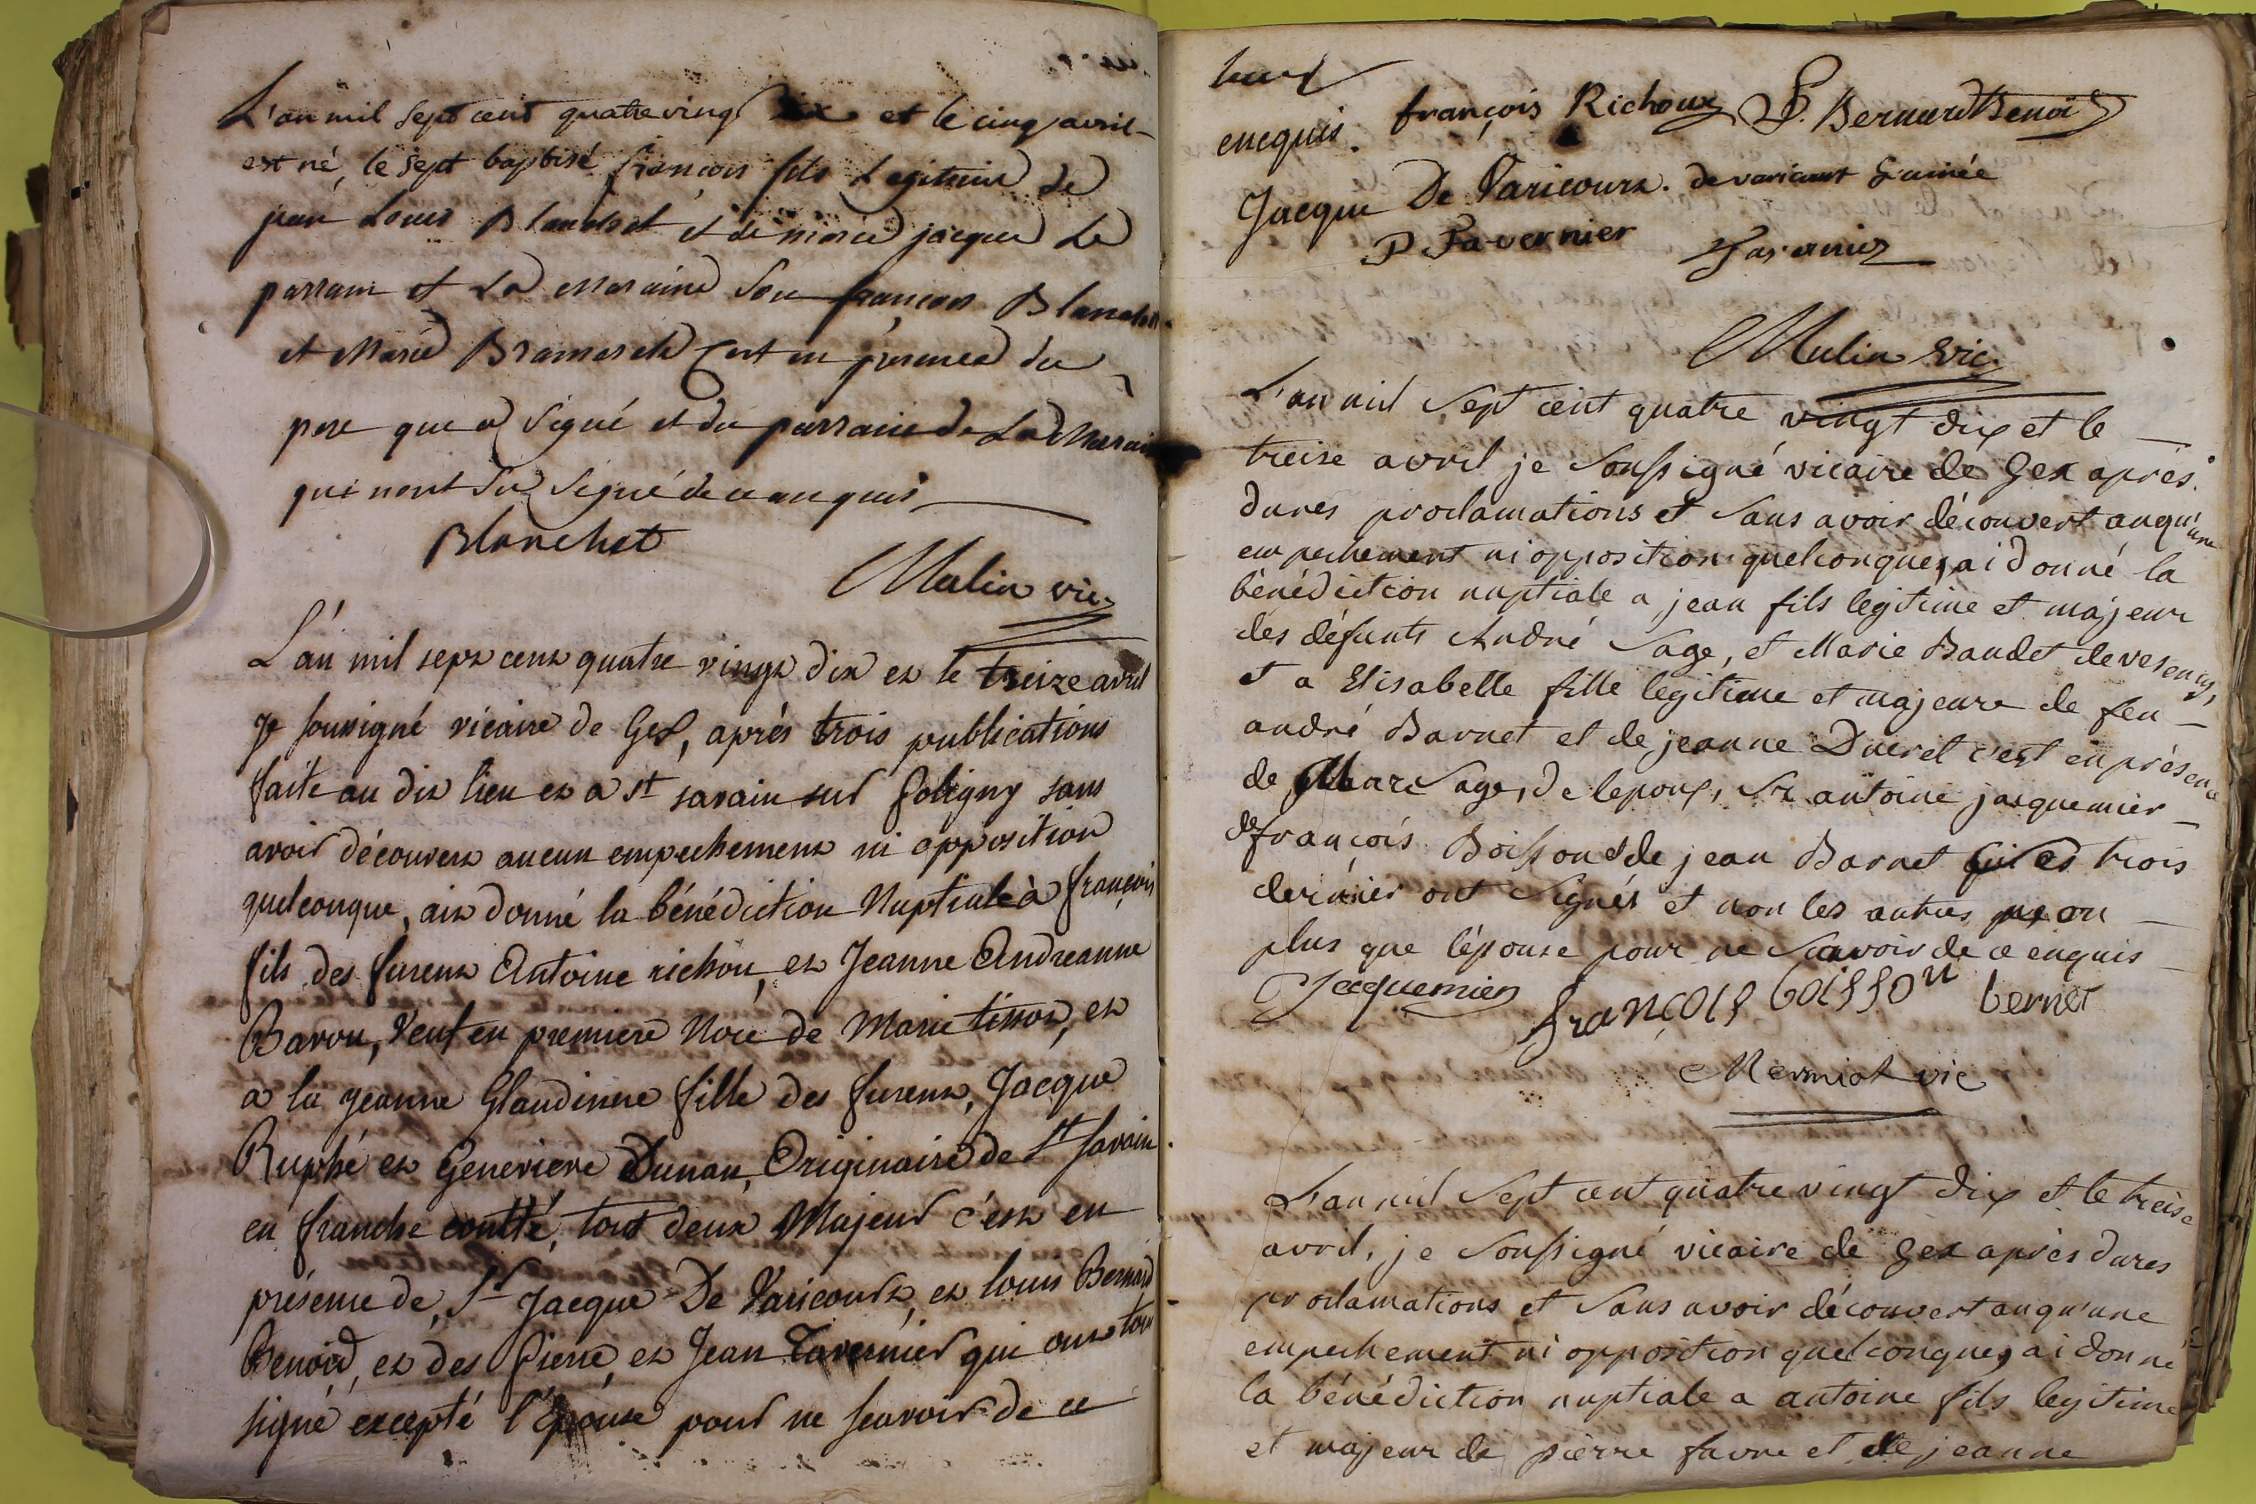 L'an mil sept cent quatre ving dix et le cinq avril
est né, le sept baptisé françois fils Legitime de
jean Louis Blanchet et de marie jacquer Le
parrain et La Maraine Son françois Blanchet
et Marie Bramerele C'est en presence du
pere qui a Signé et du parraine de La Marain
qui nont Su Signé de ce anquis
Blanchet
Mulin vic
L'án mil sept cent quatre vingt dix et le treize avril
je soussigné vicaire de Gex, aprés trois publications
faite au dit lieu et a st savain sur Poligny sans
avoir découvert aucun empechement ni opposition
quelconque, ait donné la bénédiction Nuptiale à françois
fils des furent Antoine richou, et Jeanne Andreanne
Barou, Veuf en premiere Noce de Marie tissot, et
a la jeanne Glaudinne fille des furent, Jacque
Ruphé et Genevieve Dunan, Originaire de St Savain
en franche comtté, tout deux Majeur c'est en
présence de, Sr Jacque De Varicourt, et louis Bernard
Benoid, et des Pierre et Jean Tavernier qui ont tour
signé excepté l'épouse pour ne scavoir de ce
enequis. françois Richoux Bernard Benoi
Jacque De Varicourt. devaricourt L'ainée
P Tavernier Tavernier
Mulin vic
L'an mil Sept cent quatre vingt dix et le
treise avril je Soussigné vicaire de Gex aprés
dures proclamations et Sans avoir découvert auqu'une
empechement ni opposition quelconque, ai donné la
bénédiction nuptiale a jean fils legitime et majeur
des défunts André Sage, et Marie Baudet de vesency,
et a Elisabette fille legitime et majeure de feu
andré Barnet et de jeanne Ducret c'est en présence
de Marc Sage, de lepoux, Sr antoine jacquemier
de françois Boisson de jean Barnet les trois
derinier ont Signés et non les autres non
plus que lépouse pour ne Savoir de ce enquis
Jacquemier françois boisson bernet
Mermiot vic
L'an mil Sept cent quatre vingt dix et le treise
avril, je Soussigné vicaire de Gex aprés dures
proclamations et Sans avoir découvert auqu'une
empechement ni opposition quelconque, ai donné
la bénédiction nuptiale a antoine fils legitime
et majeur de pierre favre et de jeanne